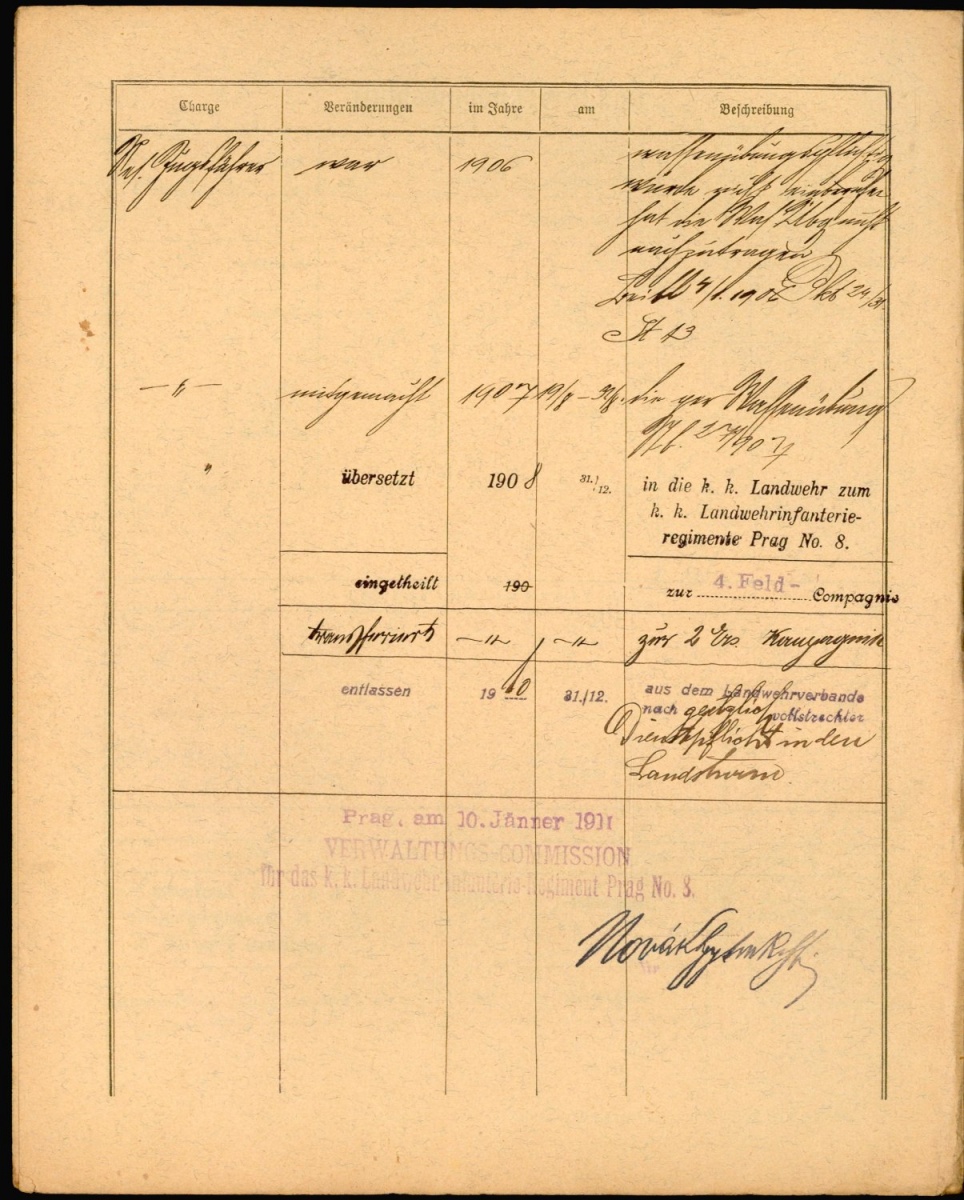 Charge Veränderungen im Jahre am Beschreibung
Res. Zugsführer war 1906 waffenübungspflichtig
wurde nicht einberufen
hat die Waf Übg nicht
nachzutragen
1906 24/31
— " — mitgemacht 1907 19/8 – 31/8 die Waffenübung
" übersetzt 1908 31./12. in die k. k. Landwehr zum
k. k. Landwehrinfanterie-
regimente Prag No. 8.
eingetheilt 190 zur 4. Feld- Compagnie
transferiert — " — — " — zur 2 Ers. Kompagnie
entlassen 1910 31./12. aus dem Landwehrverbande
nach gesetzlich vollstreckter
Dienstpflicht in den
Landsturm
Prag, am 10. Jänner 1911
VERWALTUNGS-COMMISSION
für das k. k. Landwehr-Infanterie-Regiment Prag No. 8.
Novák